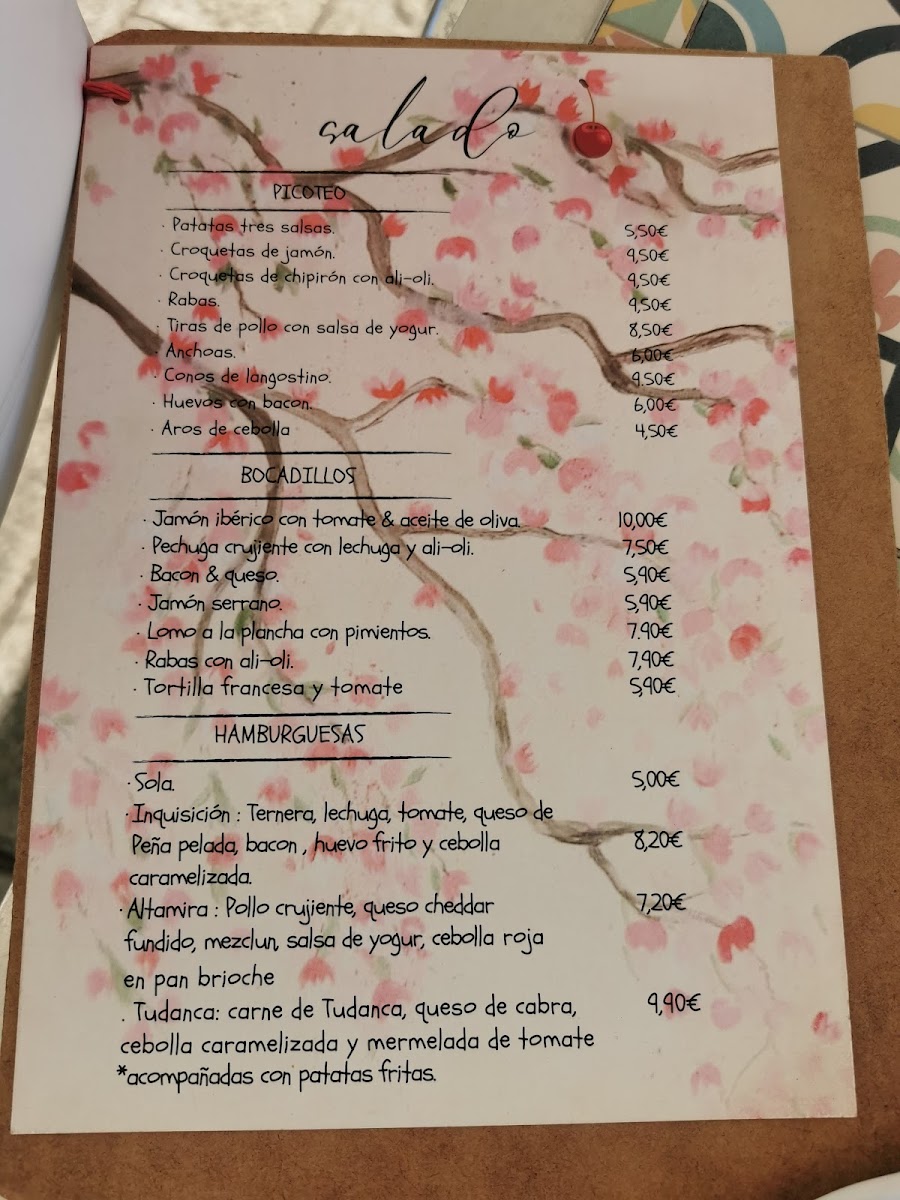 salado
PICOTEO
· Patatas tres salsas. 5,50€
· Croquetas de jamón. 9,50€
· Croquetas de chipirón con ali-oli. 9,50€
· Rabas. 9,50€
· Tiras de pollo con salsa de yogur. 8,50€
· Anchoas. 6,00€
· Conos de langostino. 9.50€
· Huevos con bacon. 6,00€
· Aros de cebolla 4,50€
BOCADILLOS
· Jamón ibérico con tomate & aceite de oliva. 10,00€
· Pechuga crujiente con lechuga y ali-oli. 7,50€
· Bacon & queso. 5,90€
· Jamón serrano. 5,90€
· Lomo a la plancha con pimientos. 7.90€
· Rabas con ali-oli. 7,90€
· Tortilla francesa y tomate 5,90€
HAMBURGUESAS
· Sola. 5,00€
· Inquisición : Ternera, lechuga, tomate, queso de
Peña pelada, bacon , huevo frito y cebolla 8,20€
caramelizada.
· Altamira : Pollo crujiente, queso cheddar 7,20€
fundido, mezclun, salsa de yogur, cebolla roja
en pan brioche
. Tudanca: carne de Tudanca, queso de cabra, 9,90€
cebolla caramelizada y mermelada de tomate
*acompañadas con patatas fritas.